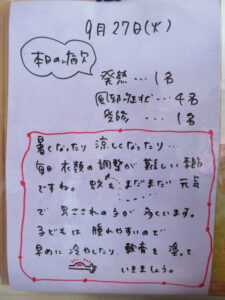 9月27日(火)
本日の病欠
発熱…1名
風邪症状…4名
受診…1名
暑くなったり 涼しくなったり…
毎日 衣類の調整が難しい季節
ですね。蚊も まだまだ 元気
で 虫さされの子が 多くいます。
子どもは 腫れやすいので
早めに 冷やしたり、軟膏を 塗って
いきましょう。